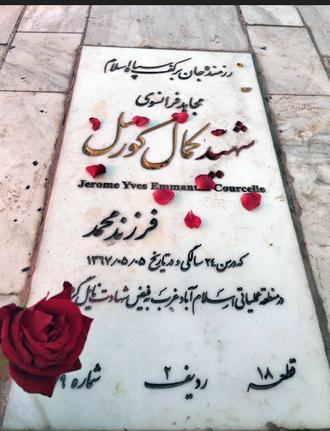 رزمنده جان بر کف سپاه اسلام
مجاهد فرانسوی
شهید کمال کورسل
Jerome Yves Emmanuel Courcelle
فرزند محمد
که در سن ۲۴ سالگی و در تاریخ ۱۳۶۷/۰۵/۰۵
در منطقه عملیاتی اسلام آباد غرب به فیض شهادت نایل
قطعه ۱۸ ردیف ۲ شماره ۹